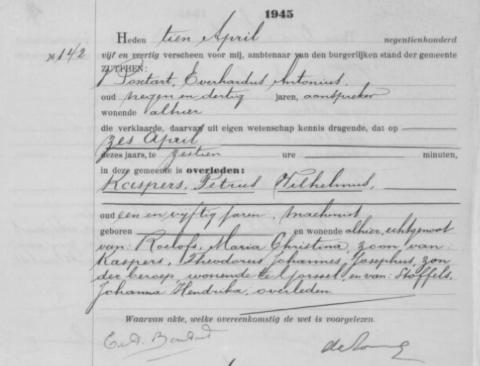 1945
Heden tien April negentienhonderd
No 142 vijf en veertig verscheen voor mij, ambtenaar van den burgerlijken stand der gemeente
ZUTPHEN:
Everhardus Antonius,
oud negen en dertig jaren, aanspreker
wonende alhier
die verklaarde, daarvan uit eigen wetenschap kennis dragende, dat op
zes April
dezes jaars, te zestien ure minuten,
in deze gemeente is overleden:
Kaspers, Petrus Wilhelmus,
oud een en vyftig jaren, machinist
geboren en wonende alhier, echtgenoot
van: Roelofs, Maria Christina, zoon van:
Kaspers, Theodorus Johannes Josephus, zon
der beroep, wonende te Gorssel, en van: Stoffels,
Johanna Hendrika, overleden
Waarvan akte, welke overeenkomstig de wet is voorgelezen.
de Jong